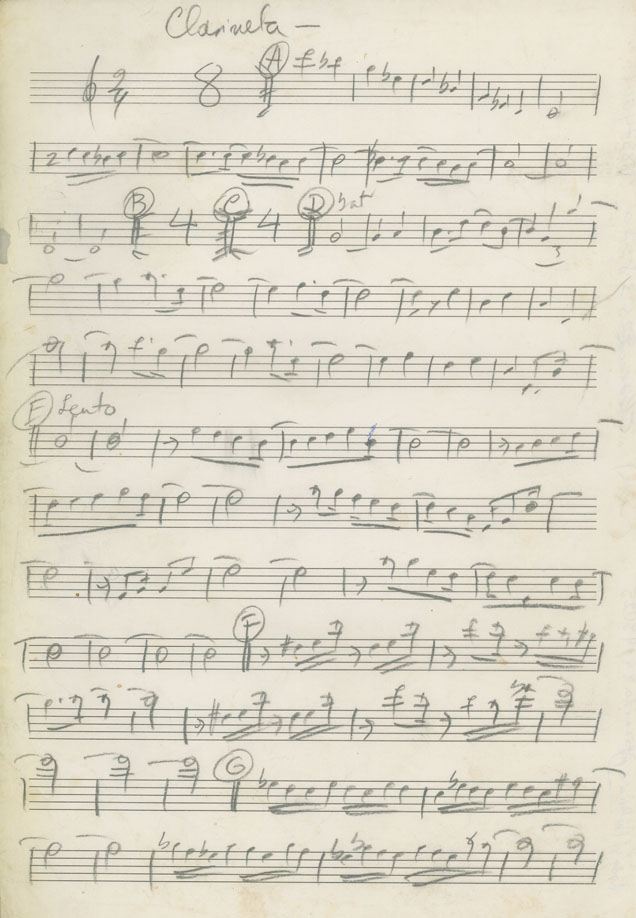 Clarineta —
2/4 8 A
2
B 4 C 4 D
3
E Lento
F
G